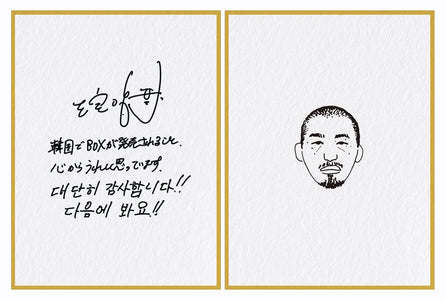 韓国でBOXが発売されること、
心からうれしく思っています。
대단히 감사합니다!!
다음에 봐요!!